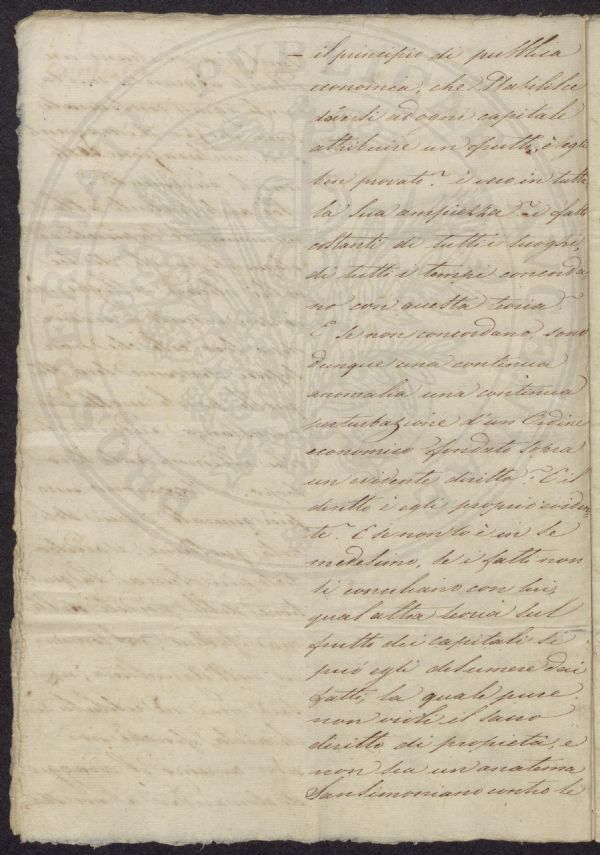 — il principio di pubblica
economia, che stabilisce
doversi ad ogni capitale
attribuire un frutto, è egli
ben provato? è vero in tutta
la sua ampiezza? i fatti
costanti di tutti i luoghi,
di tutti i tempi concorda,
no con questa teoria?
E se non concordano, sono
dunque una continua
anomalia una continua
perturbazione d'un Ordine
economico fondato sopra
un evidente diritto? E il
diritto è egli proprio eviden,
te? E se non lo è in se
medesimo, se i fatti non
si conciliano con lui,
qual altra teoria sul
frutto dei capitali si
può egli desumere dai
fatti, la quale pure
non violi il sacro
diritto di propietà, e
non sia un anatema
Sansimoniano contro le
POSTERITATI PUBLICAE